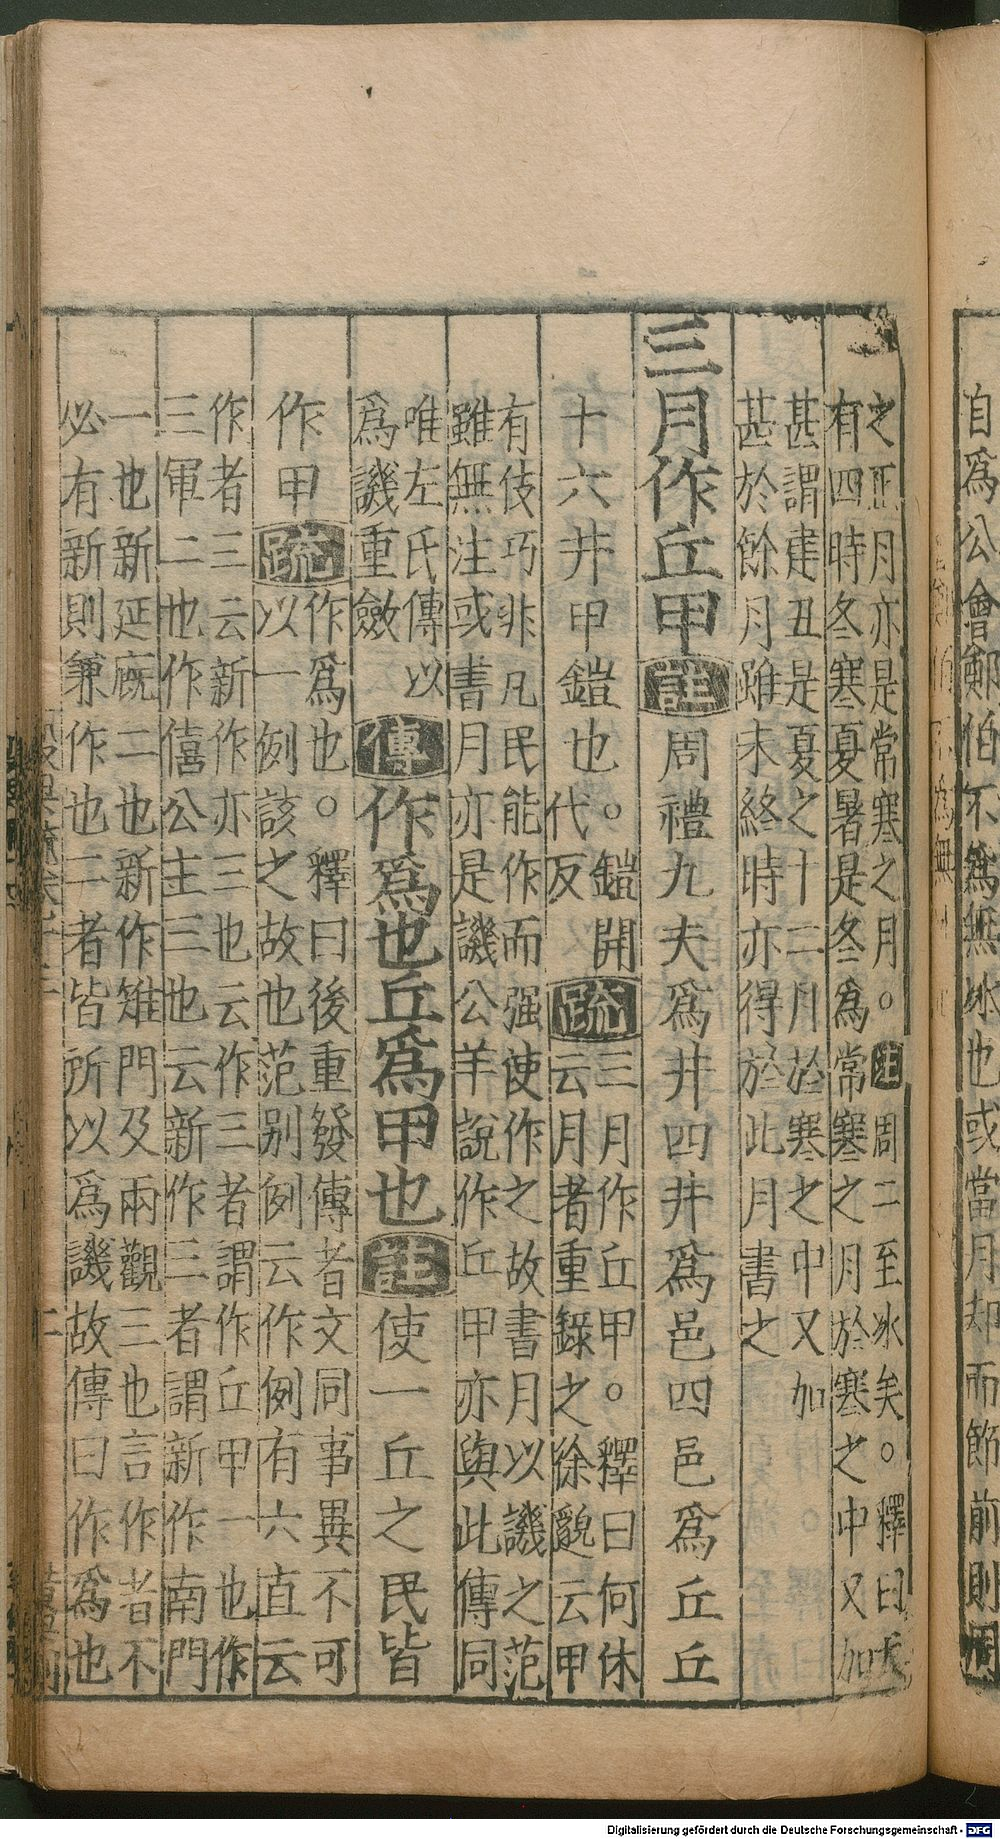 自爲公會鄭伯不爲無冰也或當月却而節前則周
之正月亦是常寒之月。註周二至冰矣。釋曰
有四時冬寒夏暑是冬爲常寒之月於寒之中又加
甚謂建丑是夏之十二月於寒之中又加
甚於餘月雖未終時亦得於此月書之
三月作丘甲註周禮九夫爲井四井爲邑四邑爲丘丘
十六井甲鎧也。鎧開
代反
疏三月作丘甲。釋曰何休
云月者重錄之徐邈云甲
有伎巧非凡民能作而强使作之故書月以譏之范
雖無注或書月亦是譏公羊說作丘甲亦與此傳同
唯左氏傳以
爲譏重斂
傳作爲也丘爲甲也註使一丘之民皆
作甲疏作爲也。釋曰後重發傳者文同事異不可
以一例該之故也范别例云作例有六直云
作者三云新作亦三也云作三者謂作丘甲一也作
三軍二也作僖公主三也云新作三者謂新作南門
一也新延廐二也新作雉門及兩觀三也言作者不
必有新則兼作也二者皆所以爲譏故傳曰作爲也
Digitalisierung gefördert durch die Deutsche Forschungsgemeinschaft - DFG